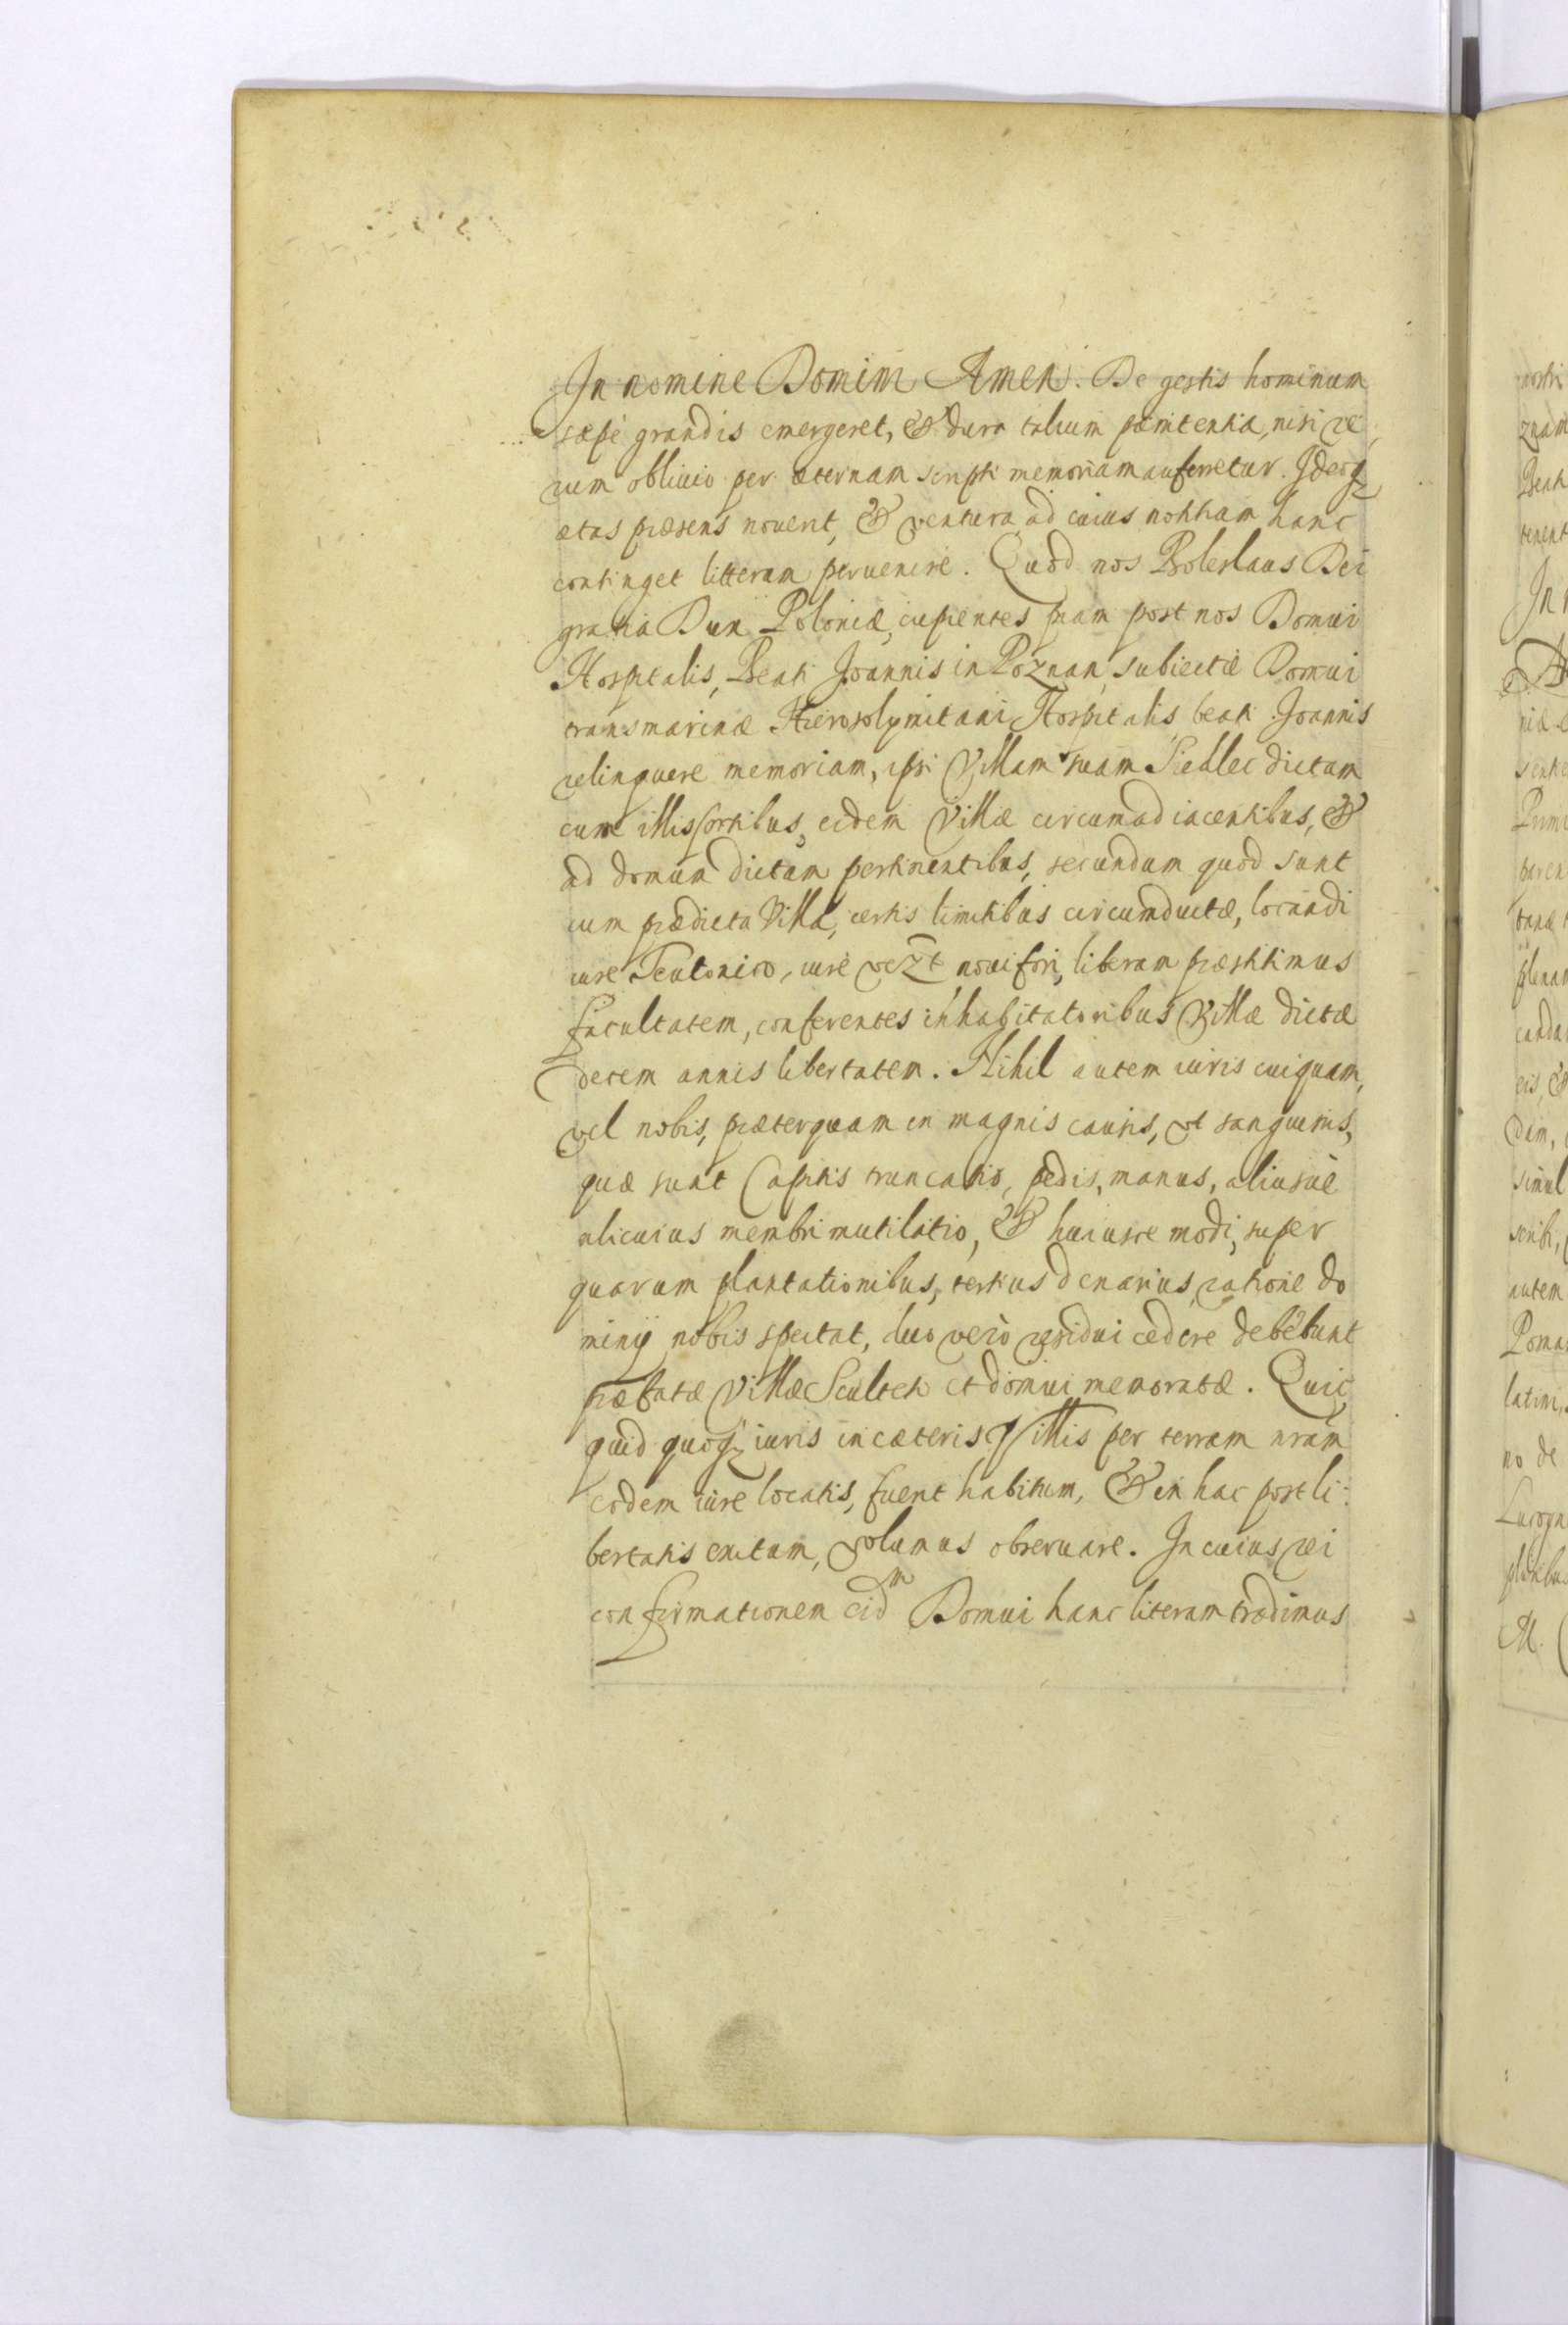 In nomine Domini Amen. De gestis hominum
sæpè grandis emergeret, & dura talium pænitentia, nisi re
rum obliuio per æternam scripti memoriam auferretur. Ideoq
ætas præsens nouerit, & ventura ad cuius notitiam hanc
continget litteram peruenire. Quod nos Boleslaus Dei
gratia Dux Poloniæ, cupientes piam post nos Domui
Hospitalis, Beati Joannis in Poznan, subiectæ Domui
transmarinæ Hierosolymitani Hospitalis beati Joannis
relinquere memoriam, ipsi Villam suam Siedlec dictam
cum illis sortibus, eidem Villæ circumadiacentibus, &
ad domum dictam pertinentibus, secundum quod sunt
cum prædicta Villa, certis limitibus circumductæ, locandi
iure Teutonico, iure vczt noui fori, liberam præstitimus
facultatem, conferentes inhabitatoribus Villæ dictæ
decem annis libertatem. Nihil autem iuris cuiquam,
vel nobis, præterquam in magnis causis, vt sanguinis,
quæ sunt Capitis truncatio, pedis, manus, aliusuè
alicuius membri mutilatio, & huiusce modi, super
quarum plantationibus, tertius denarius, ratione do
minij nobis spectat, duo verò residui cedere debebunt
præfatæ Villæ Sculteti et domui memoratæ. Quic
quid quoq iuris in cæteris Villis per terram nram
eodem iure locatis, fuerit habitum, & in hac post li
bertatis exitum, volumus obseruare. In cuius rei
confirmationem eidm Domui hanc literam tradimus
In
M.